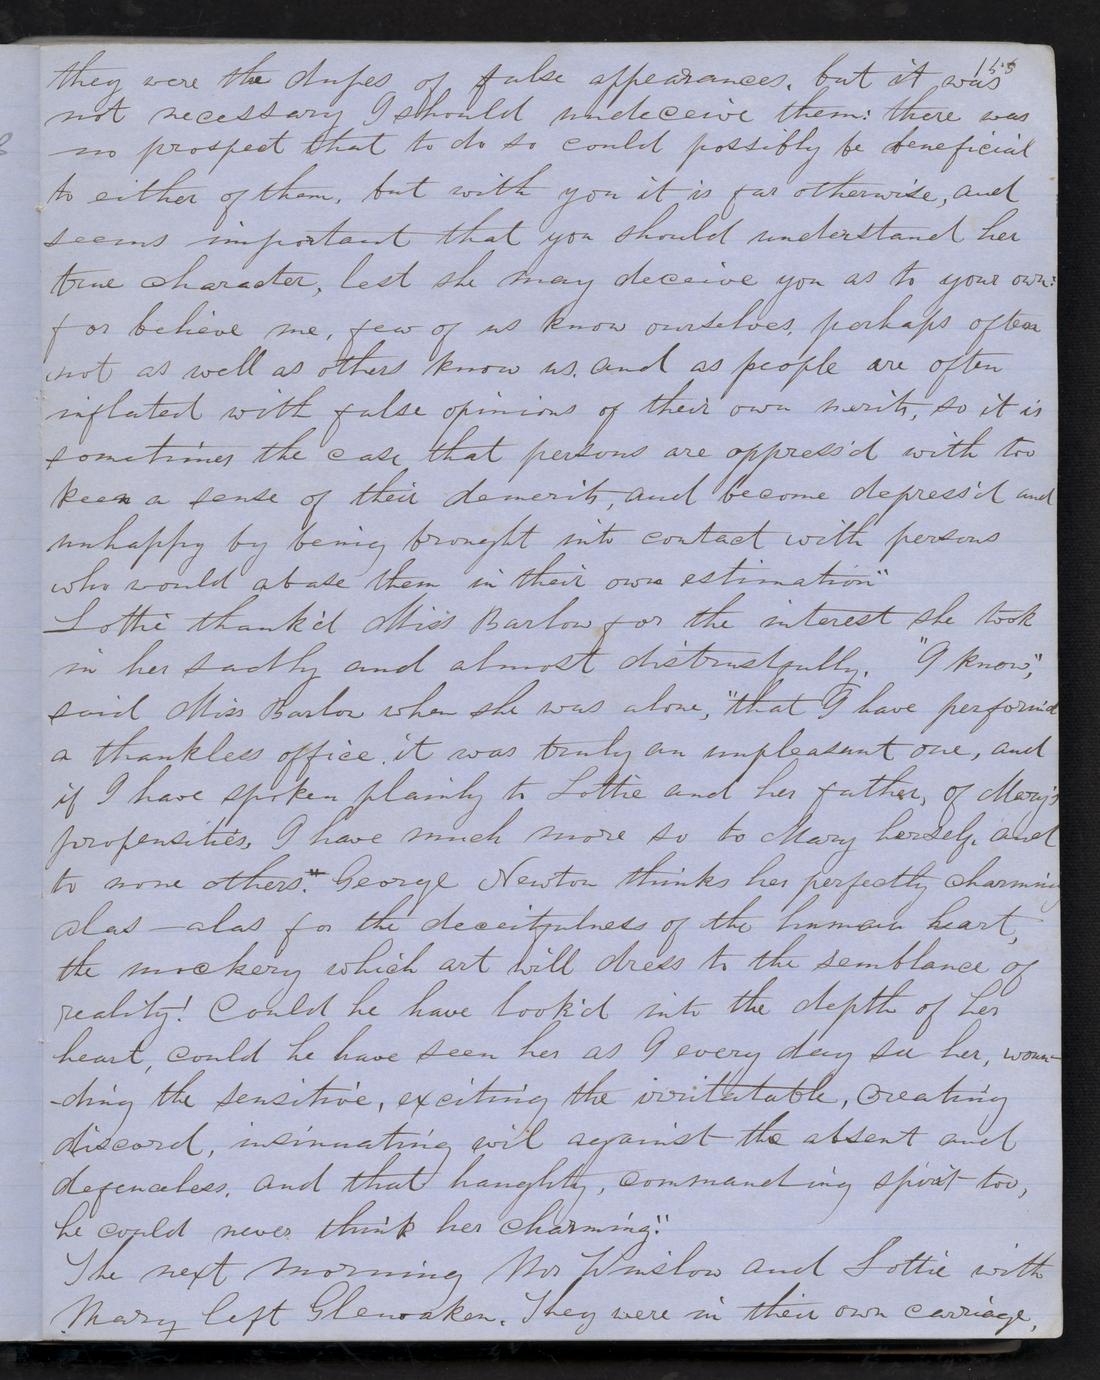 155
they were the dupes of false appearances, but it was
not necessary I should undeceive them: there was
no prospect that to do so could possibly be beneficial
to either of them, but with you it is far otherwise, and
seems important that you should understand her
true character, lest she may deceive you as to your own:
for believe me, few of us know ourselves, perhaps often
not as well as others know us, and as people are often
inflated with false opinions of their own merits, so it is
sometimes the case that persons are oppress'd with too
keen a sense of their demerits, and become depress'd and
unhappy by being brought into contact with persons
who would abase them in their own estimation"
Lottie thank'd Miss Barlow for the interest she took
in her sadly and almost distrustfully. "I know",
said Miss Barlow when she was alone, "that I have perform'd
a thankless office. it was truly an unpleasant one, and
if I have spoken plainly to Lottie and her father, of Mary's
propensities, I have much more so to Mary herself, and
to none others." George Newton thinks her perfectly charming
alas — alas for the deceitfulness of the human heart,
the mockery which art will dress to the semblance of
reality! Could he have look'd into the depth of her
heart, could he have seen her as I every day see her, woun-
-ding the sensitive, exciting the irritatable, creating
discord, insinuating evil against the absent and
defenceless, and that haughty, commanding spirit too,
he could never think her charming."
The next morning Mr Winslow and Lottie with
Mary left Glenoaken. They were in their own carriage,